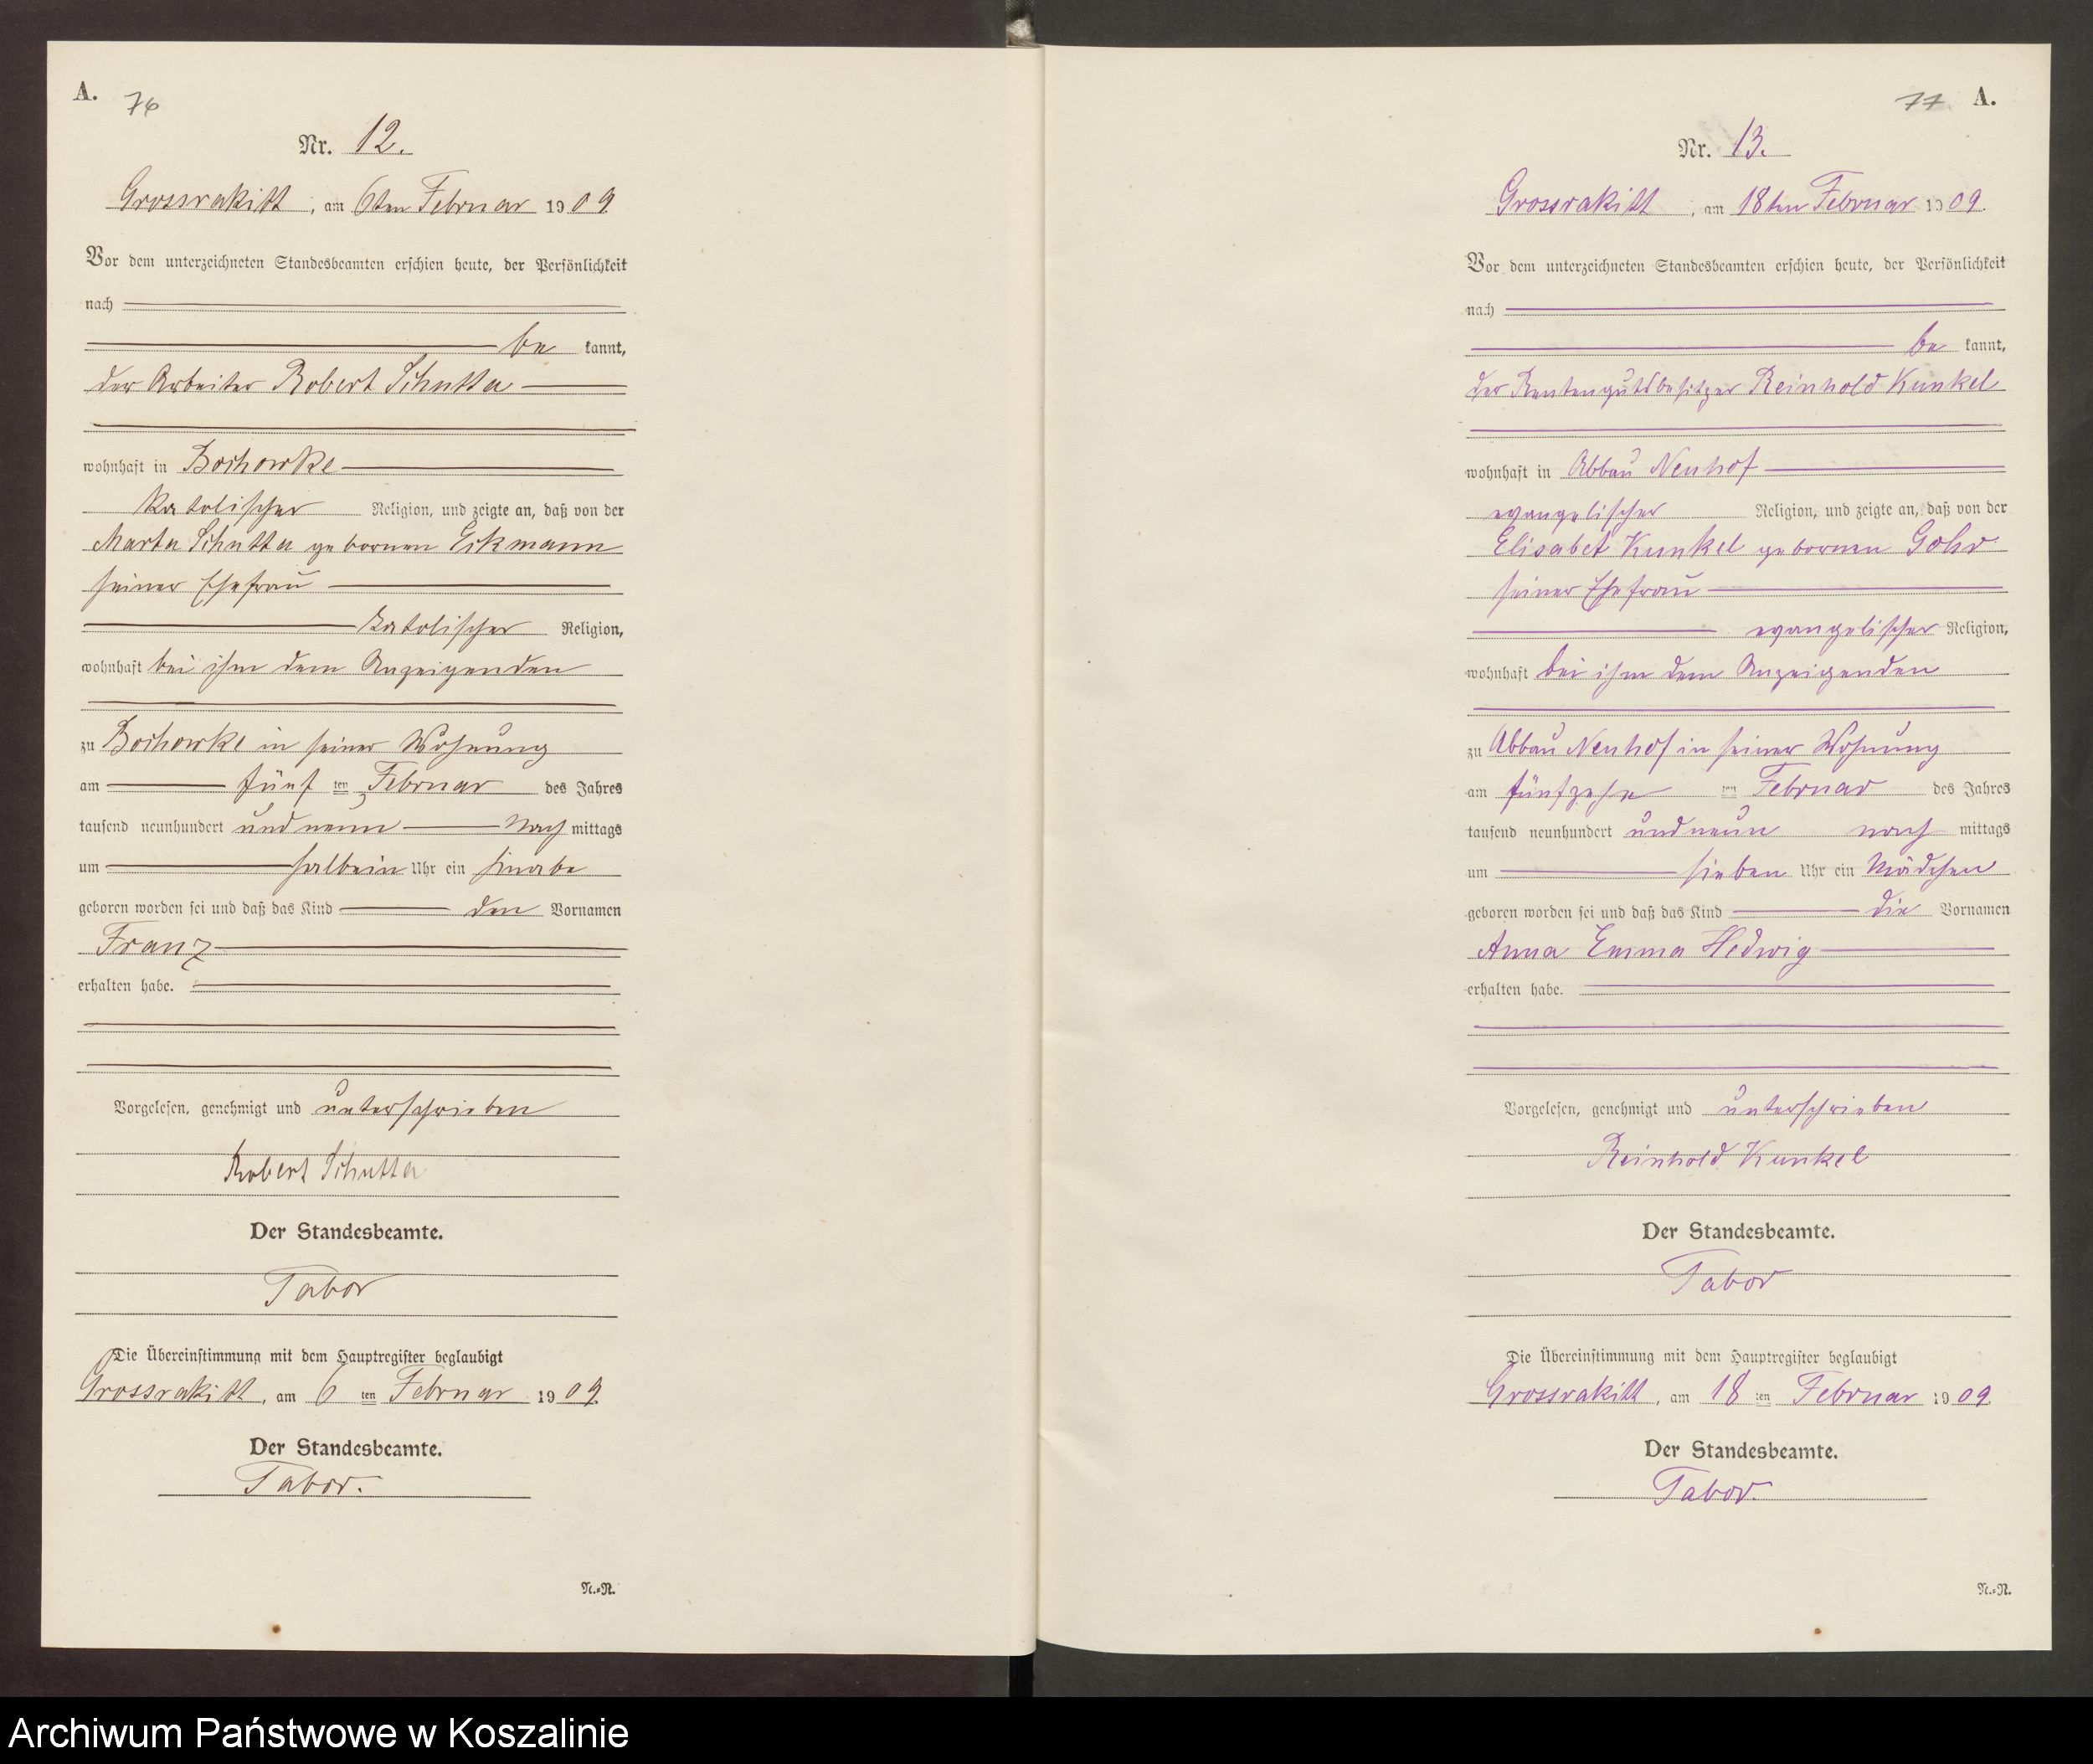 A.
76
Nr. 12.
Grossrakitt, am 6ten Februar 1909.
Vor dem unterzeichneten Standesbeamten erschien heute, der Persönlichkeit
nach
be kannt,
der Arbeiter Robert Schutta
wohnhaft in Bochowke
katolischer Religion, und zeigte an, daß von der
Marta Schutta gebornen Eikmann
seiner Ehefrau
katolischer Religion,
wohnhaft bei ihm dem Anzeigenden
zu Bochowke in seiner Wohnung
am fünf ten Februar des Jahres
tausend neunhundert und neun Nach mittags
um halb ein Uhr ein Knabe
geboren worden sei und daß das Kind den Vornamen
Franz
erhalten habe.
Vorgelesen, genehmigt und unterschrieben
Robert Schutta
Der Standesbeamte.
Tabor
Die Übereinstimmung mit dem Hauptregister beglaubigt
Grossrakitt, am 6 ten Februar 1909.
Der Standesbeamte.
Tabor.
N.=R.
77 A.
Nr. 13.
Grossrakitt, am 18ten Februar 1909.
Vor dem unterzeichneten Standesbeamten erschien heute, der Persönlichkeit
nach
be kannt,
der Rentengutsbesitzer Reinhold Kunkel
wohnhaft in Abbau Neuhof
evangelischer Religion, und zeigte an, daß von der
Elisabet Kunkel gebornen Gohr
seiner Ehefrau
evangelischer Religion,
wohnhaft bei ihm dem Anzeigenden
zu Abbau Neuhof in seiner Wohnung
am fünfzehn ten Februar des Jahres
tausend neunhundert und neun nach mittags
um sieben Uhr ein Mädchen
geboren worden sei und daß das Kind die Vornamen
Anna Emma Hedwig
erhalten habe.
Vorgelesen, genehmigt und unterschrieben
Reinhold Kunkel
Der Standesbeamte.
Tabor
Die Übereinstimmung mit dem Hauptregister beglaubigt
Grossrakitt, am 18 ten Februar 1909.
Der Standesbeamte.
Tabor.
N.=R.
Archiwum Państwowe w Koszalinie